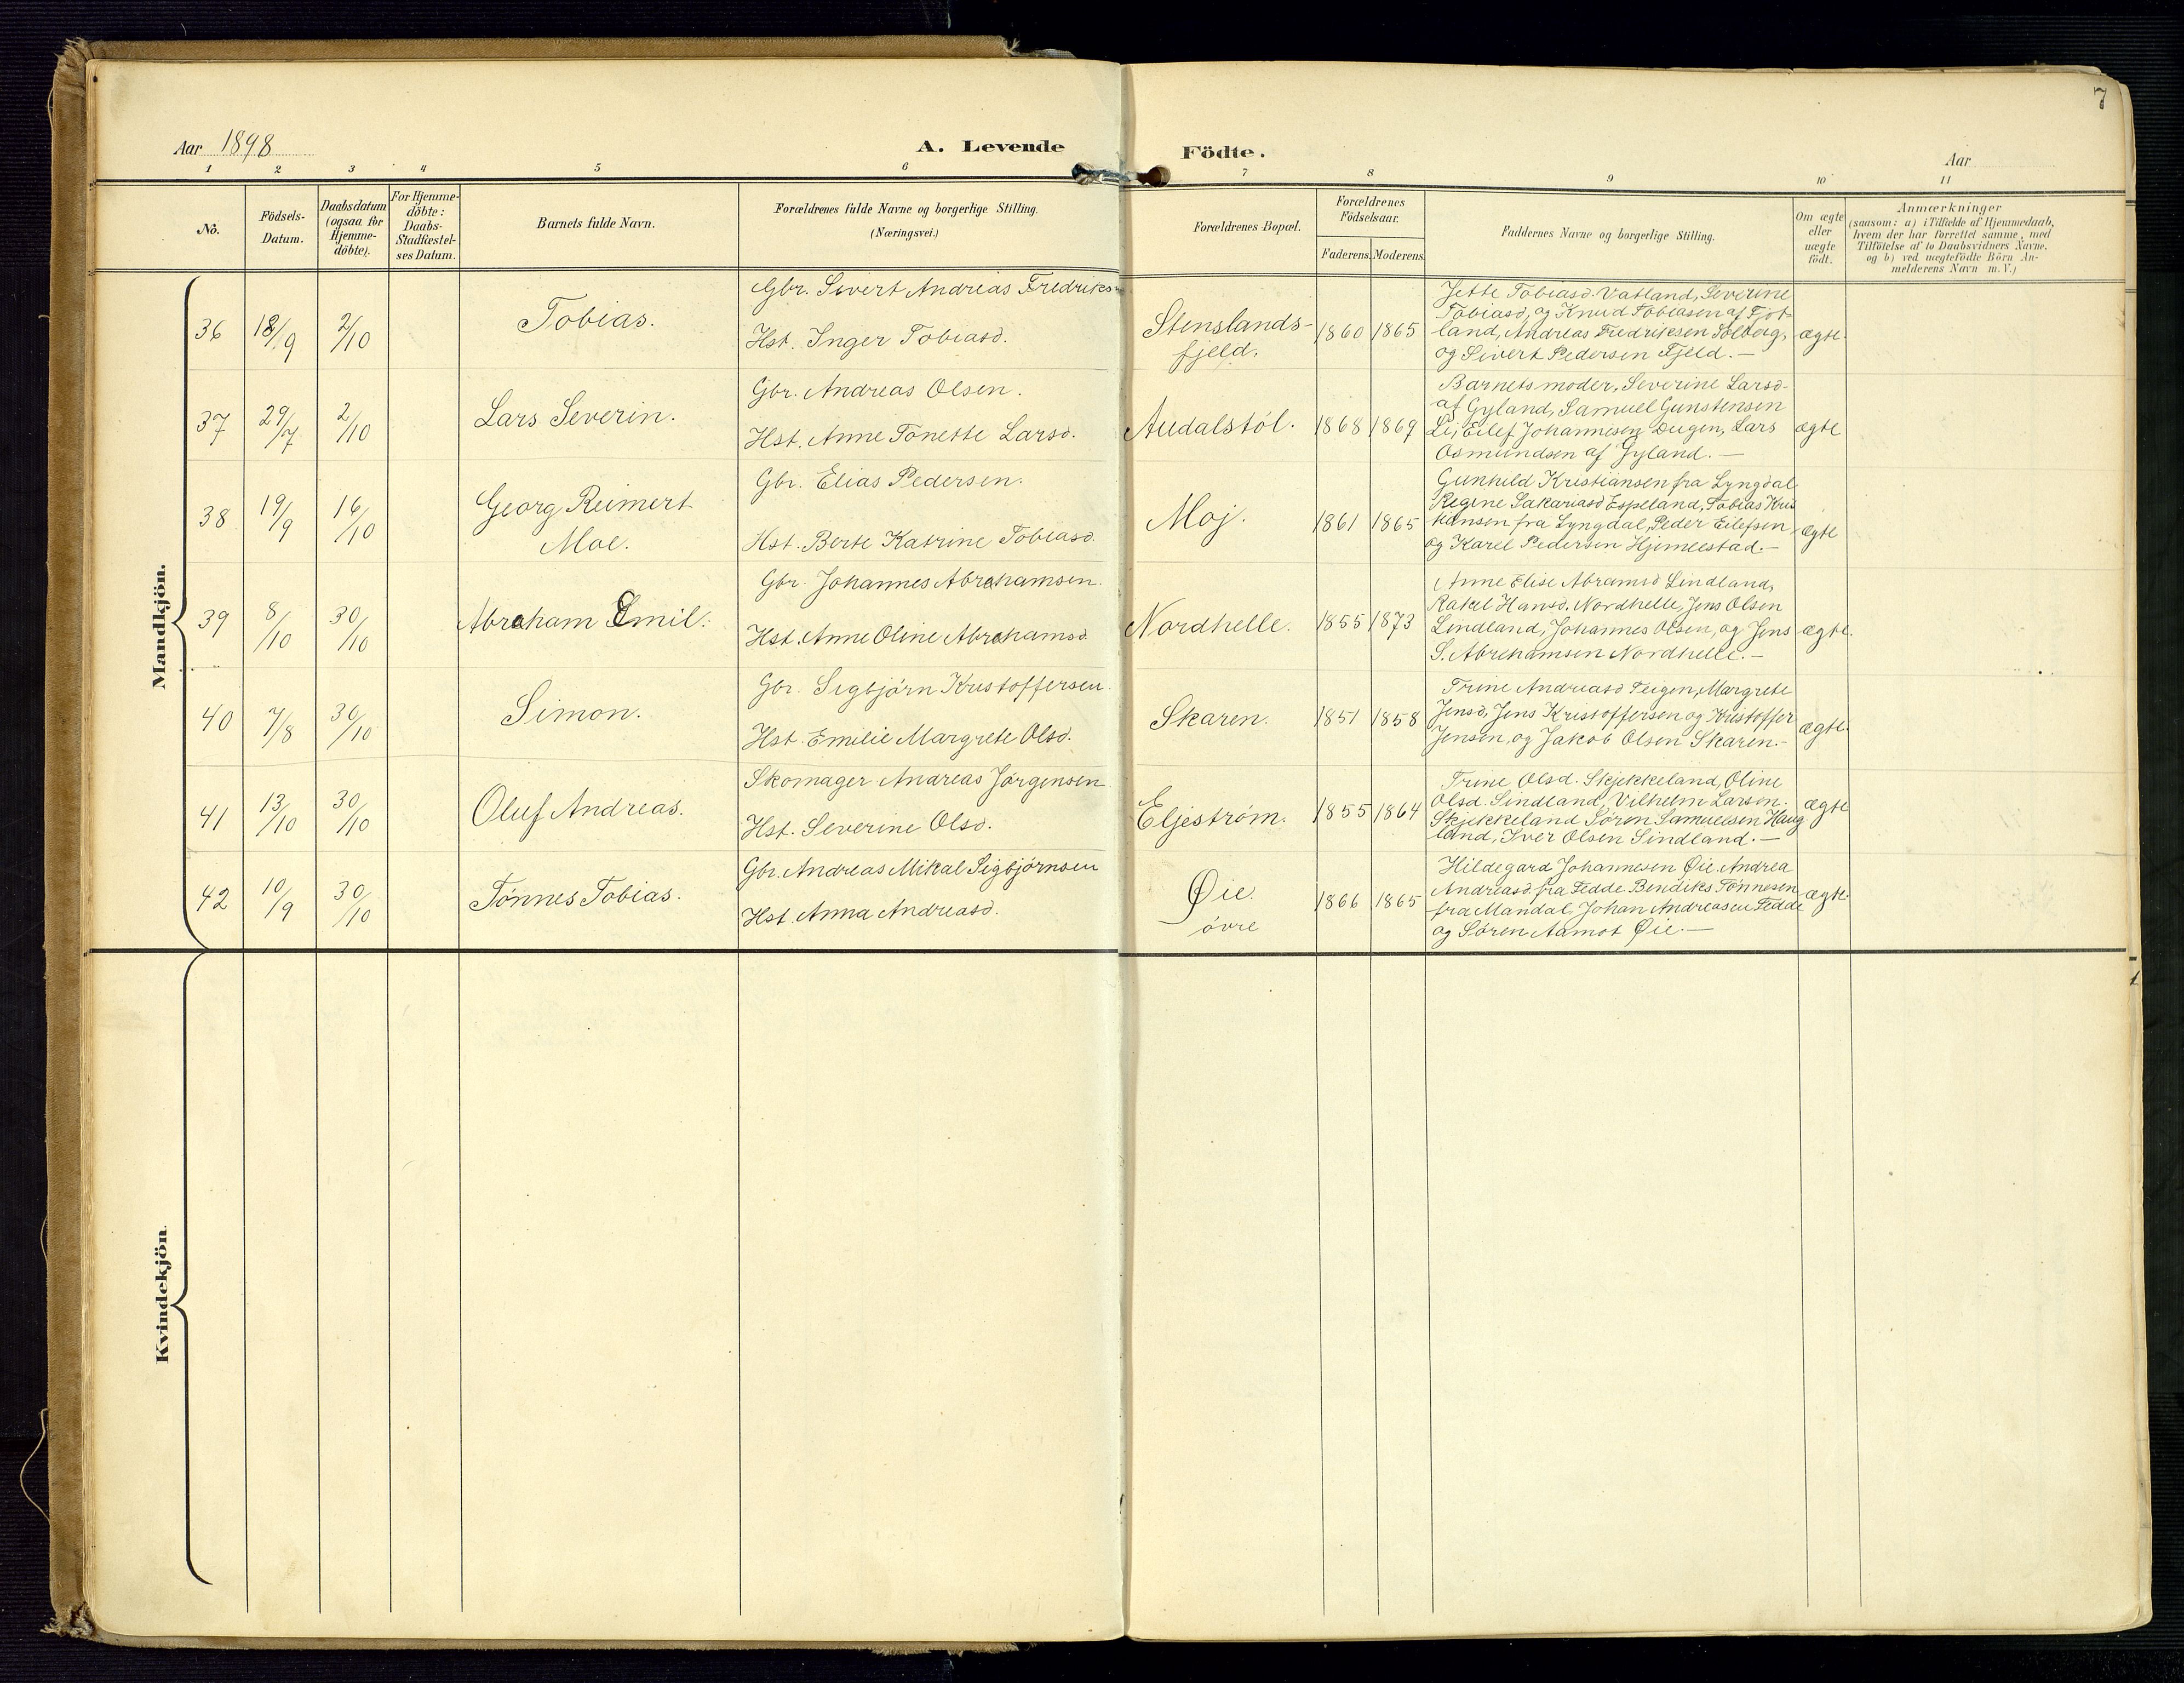 7
Aar 1898
A. Levende
Födte.
Aar
1 2 3 4 5 6 7 8 9 10 11
No.
Födsels-
Datum.
Daabsdatum
(ogsaa for
Hjemme-
döbte).
For Hjemme-
döbte:
Daabs-
Stadfæstel-
ses Datum.
Barnets fulde Navn.
Forældrenes fulde Navne og borgerlige Stilling.
(Næringsvei.)
Forældrenes Bopæl.
Forældrenes
Födselsaar.
Faderens. Moderens.
Faddernes Navne og borgerlige Stilling.
Om ægte
eller
uægte
födt.
Anmærkninger
(saasom: a) i Tilfælde af Hjemmedaab,
hvem der har forrettet samme, med
Tilföielse af to Daabsvidners Navne,
og b) ved uægtefödte Börn An-
melderens Navn m. V.)
Mandkjön.
36
18/9
2/10
Tobias.
Gbr. Sivert Andreas Fredriks-
Hst. Inger Tobiasd.
Stenslands-
fjeld.
1860 1865
Jette Tobiasd. Vatland, Severine
Tobiasd, og Knud Tobiasen af Fjot-
land, Andreas Fredriksen Solberg,
og Sivert Pedersen Fjeld.—
ægte.
37
29/7
2/10
Lars Severin.
Gbr. Andreas Olsen.
Hst. Anne Tonette Larsd.
Audalstöl.
1868 1869
Barnets moder, Severine Larsd-
af Gyland, Samuel Gunstensen
Li, Eilef Johannesen Dugen, Lars
Osmundsen af Gyland.—
ægte
38
19/9
16/10
Georg Reimert
Moe.
Gbr. Elias Pedersen.
Hst. Berte Katrine Tobiasd.
Moj.
1861 1865
Gunhild Kristiansen fra Lyngdal
Regine Sakariasd Espeland, Tobias Kris
tiansen fra Lyngdal, Peder Eilefsen
og Karel Pedersen Hjemlestad.—
ægte
39
8/10
30/10
Abraham Emil.
Gbr. Johannes Abrahamsen.
Hst. Anne Oline Abrahamsd
Nordhelle.
1855 1873
Anne Elise Abramsd Lindland,
Rakel Hansd. Nordhelle, Jens Olsen
Lindland, Johannes Olsen, og Jens
S. Abrehamsen Nordhelle.—
ægte.
40
7/8
30/10
Simon.
Gbr. Sigbjörn Kristoffersen.
Hst. Emilie Margrete Olsd.
Skaren.
1851 1858
Trine Andreasd Feigen, Margrete
Jensd, Jens Kristoffersen og Kristoffer
Jensen, og Jakob Olsen Skaren.—
ægte.
41
13/10
30/10
Oluf Andreas.
Skomager Andreas Jørgensen
Hst. Severine Olsd.
Eljeström.
1855 1864
Trine Olsd. Skjekkeland, Oline
Olsd. Sindland, Vilhelm Larsen.
Skjekkeland Søren Samuelsen Haug
land, Iver Olsen Sindland.—
ægte
42
10/9
30/10
Tönnes Tobias.
Gbr. Andreas Mikal Sigbjörnsen
Hst. Anna Andreasd.
Øie.
övre
1866 1865
Hildegard Johannesen Øie. Andrea
Andreasd. fra Fedde. Bendiks Tönnesen
fra Mandal, Johan Andreasen Fedde
og Sören Aamot Øie.—
ægte.
Kvindekjön.